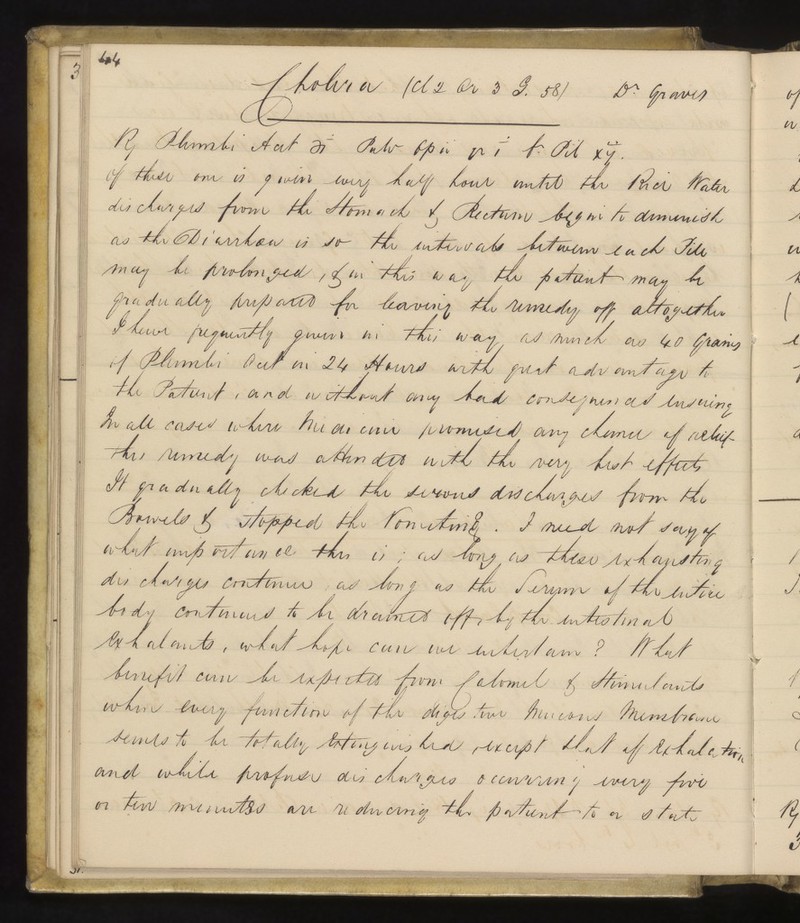 44
Cholera (Cl 2 Or 3 G. 58) Dr Graves
Rx Plumbi Acet ʒi Pulv Opii gr i ft Pil xij.
of these one is given every half hour until the Rice Water
discharges from the Stomach & Rectum begin to diminish
as the Diarrhœa is so the intervals between each Pill
may be prolonged, & in this way the patient may be
gradually prepared for leaving the remedy off altogether
I have frequently given in this way as much as 40 Grains
of Plumbi Acet in 24 Hours with great advantage to
the Patient, and without any bad consequences ensuing
In all cases where Medicine promised any chance of relief
this remedy was attended with the very best effects
It gradually checked the serous discharges from the
Bowels & stopped the Vomiting. I need not say of
what importance this is; as long as these exhausting
discharges continue as long as the Serum of the entire
body continues to be drained off by the intestinal
exhalants, what hope can we entertain? What
benefit can be expected from Calomel & Stimulants
when every function of the digestive Mucous Membrane
seems to be totally extinguished, except that of Exhalation
and while profuse discharges occurring every five
or ten minutes are reducing the patient to a state